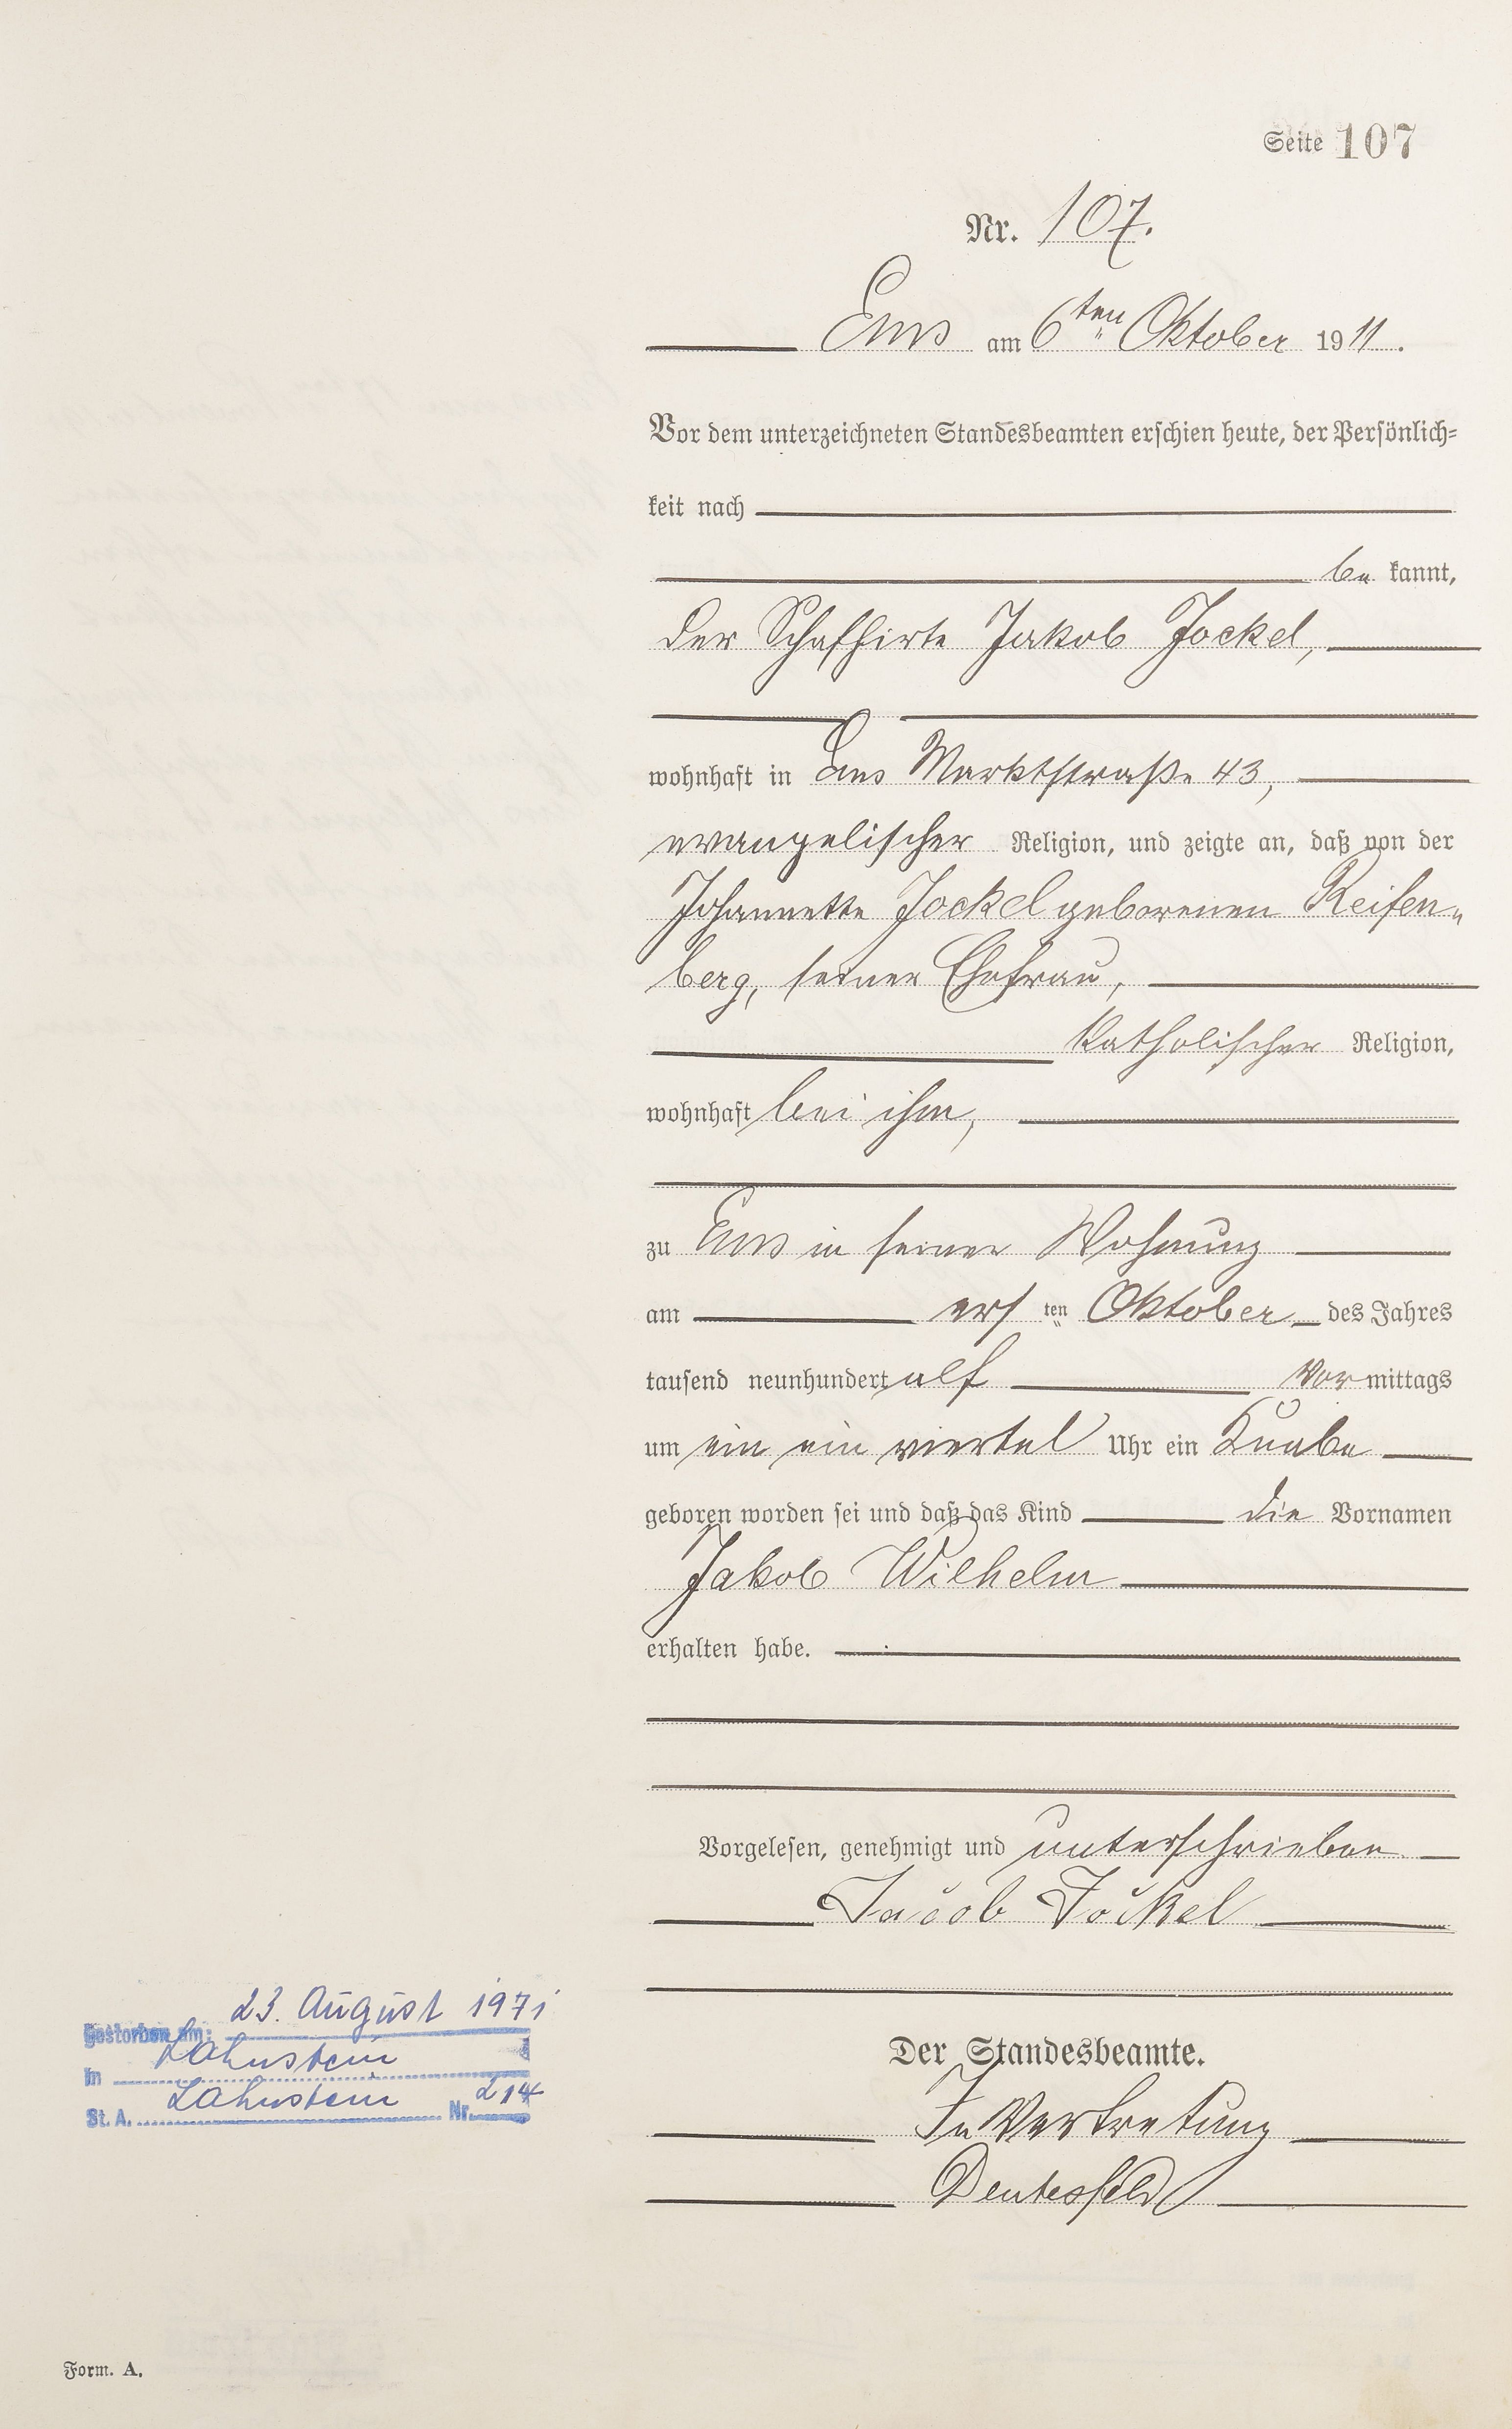 Seite 107
Nr. 107.
Ems am 6ten Oktober 1911.
Vor dem unterzeichneten Standesbeamten erschien heute, der Persönlich=
keit nach
be kannt,
der Schafhirte Jakob Jockel,
wohnhaft in Ems Marktstraße 43,
evangelischer Religion, und zeigte an, daß von der
Johannette Jockel geborenen Reifen„
berg, seiner Ehefrau,
katholischer Religion,
wohnhaft bei ihm,
zu Ems in seiner Wohnung
am ersten Oktober des Jahres
tausend neunhundert elf Vormittags
um ein ein viertel Uhr ein Knabe
geboren worden sei und daß das Kind die Vornamen
Jakob Wilhelm
erhalten habe.
Vorgelesen, genehmigt und unterschrieben
Jacob Jockel
Der Standesbeamte.
In Vertretung
Gestorben am: 23. August 1971
in Lahnstein
St. A. Lahnstein Nr. 214
Form. A.